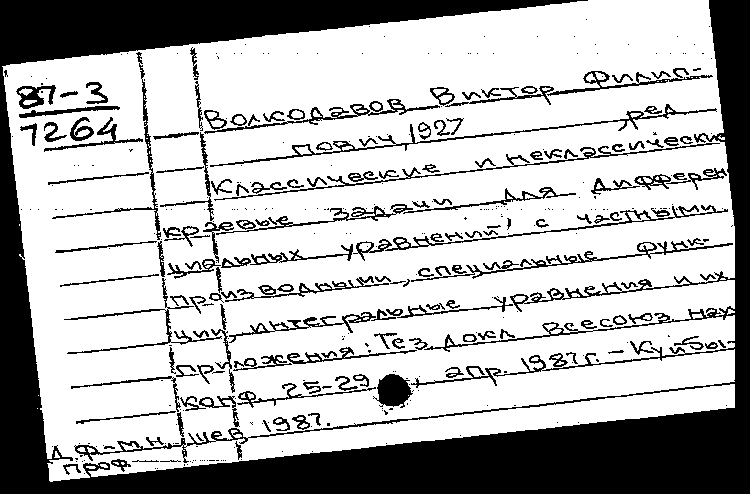 87-3
7264
Волкодавов Виктор Филип-
пович, 1927 , ред
Классические и неклассические
краевые задачи для дифферен
циальных уравнений с частными
производными, специальные функ-
ции, интегральные уравнения и их
приложения: Тез. докл Всесоюз. науч
конф., 25-29 апр. 1987г. - Куйбы-
шев 1987.
Д.ф-м.н.,
проф